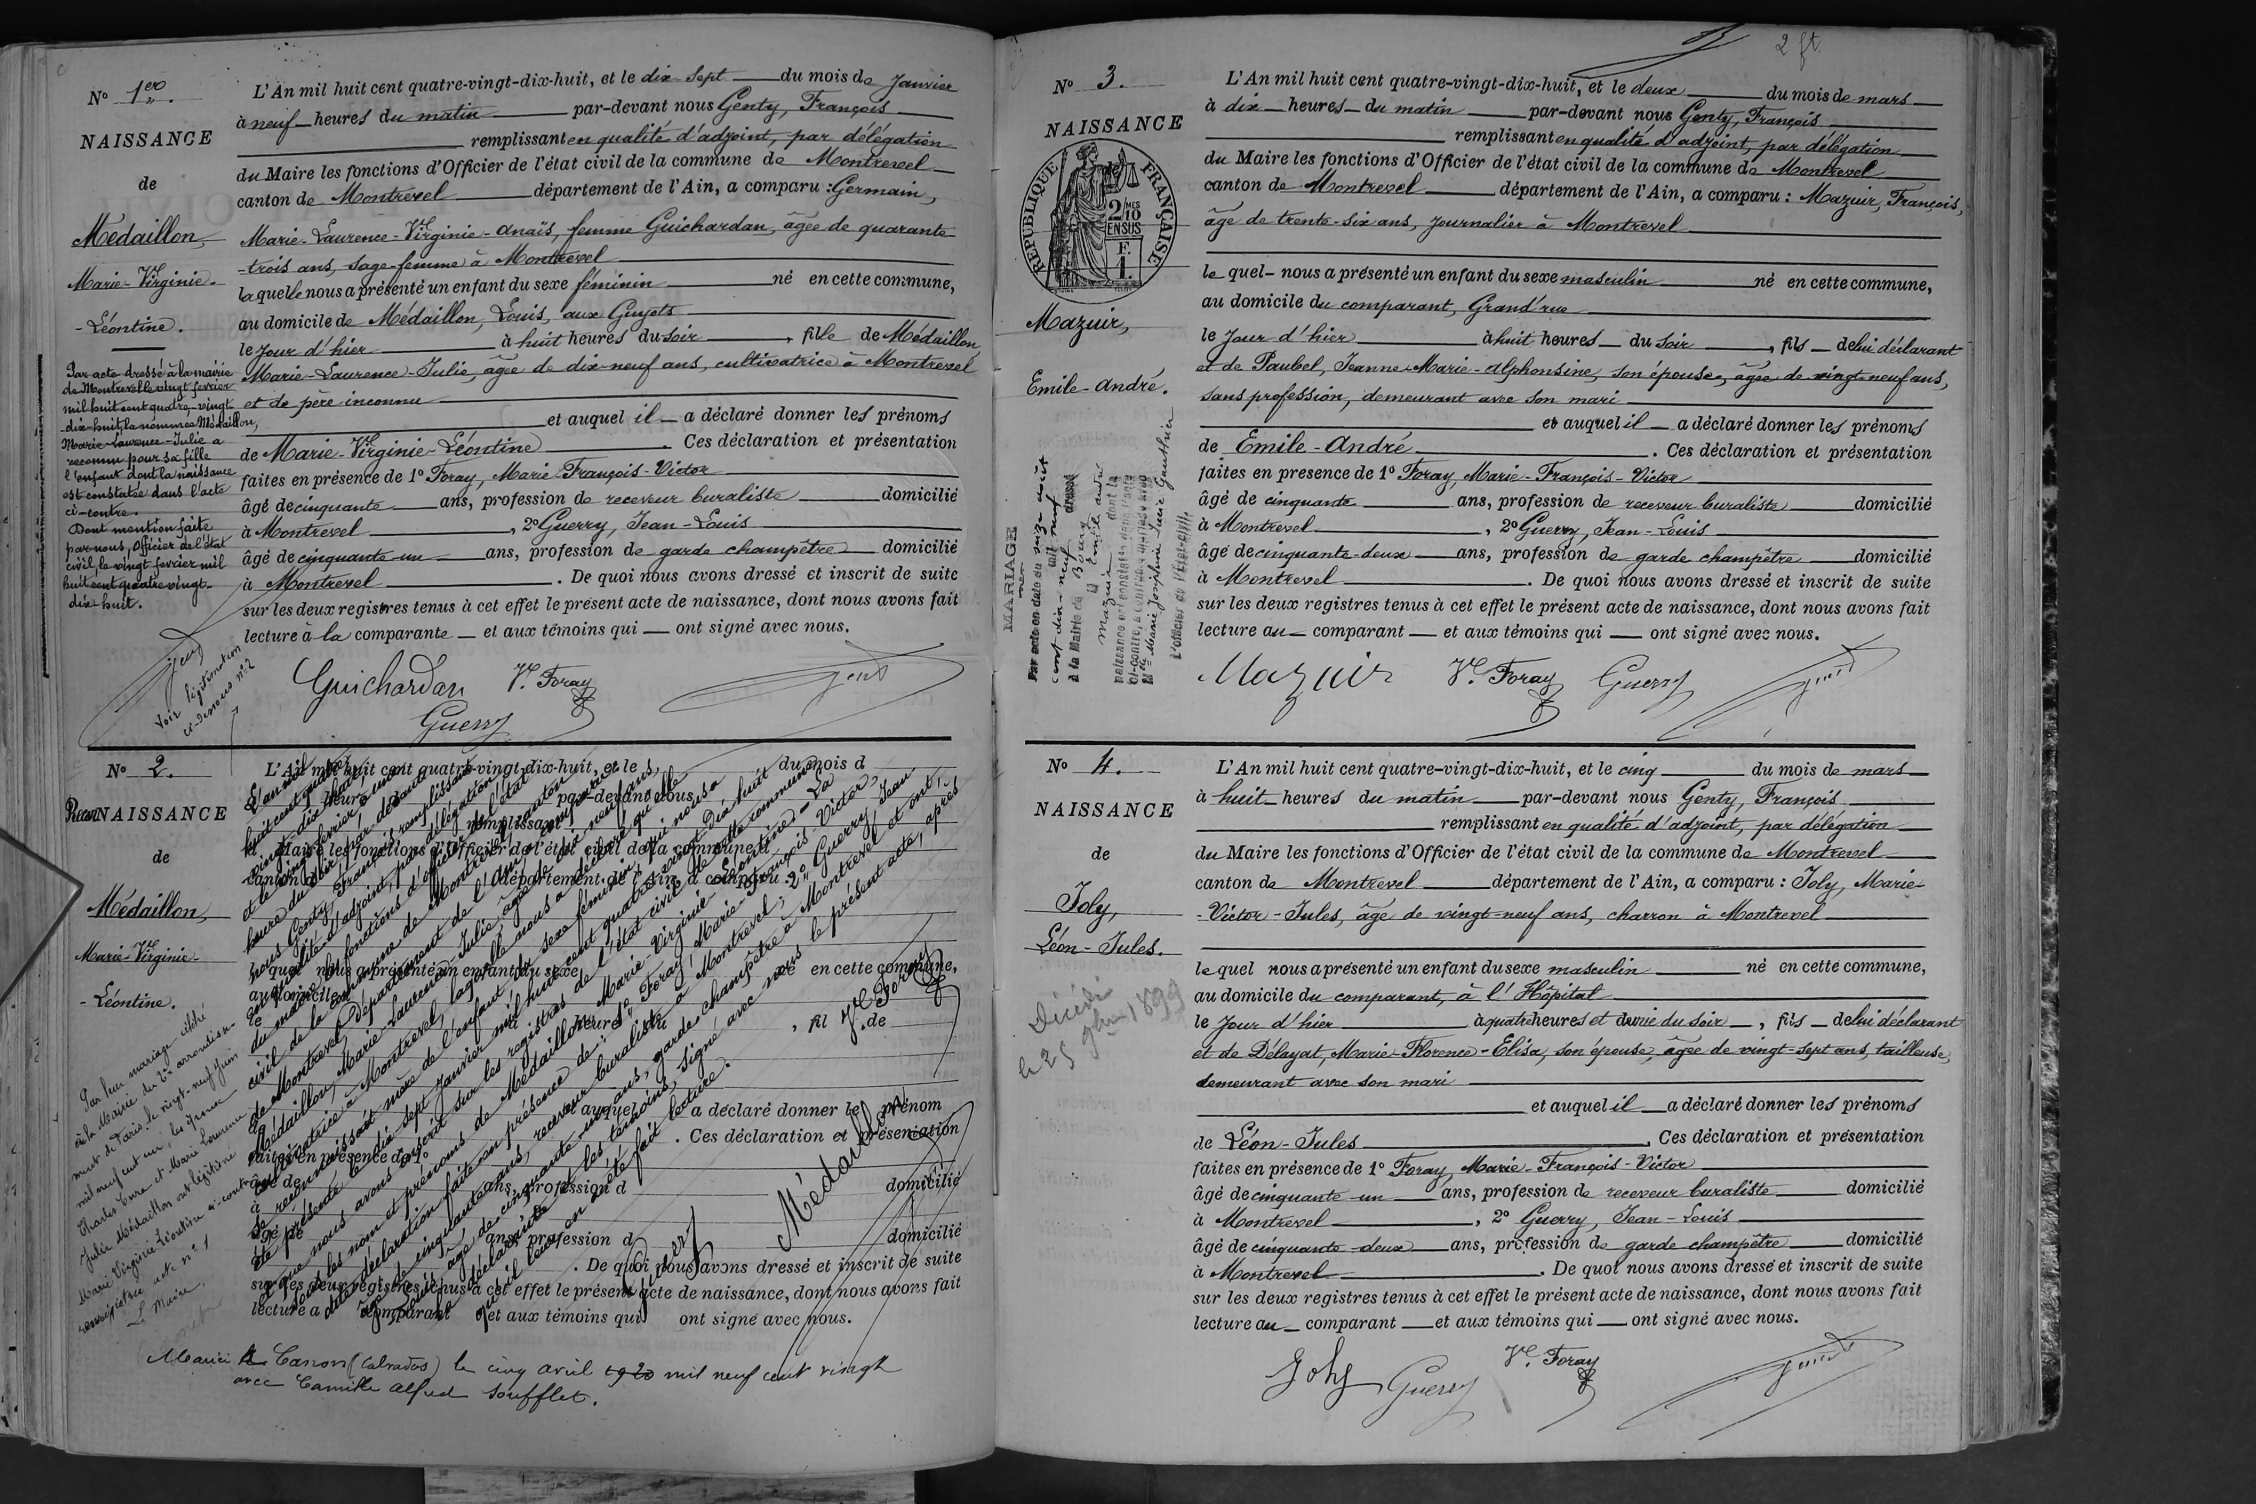 N° 1er.
NAISSANCE
de
Médaillon,
Marie-Virginie-
-Léontine.
Par acte dressé à la mairie
de Montrevel le vingt fevrier
mil huit cent quatre-vingt-
-dix-huit, la nommée Médaillon,
Marie-Laurence-Julie a
reconnu pour sa fille
l'enfant dont la naissance
est constatée dans l'acte
ci-contre.
Dont mention faite
par nous, Officier de l'état
civil, le vingt fevrier mil
huit cent quatre vingt-
dix-huit.
Voir légitimation
ci-dessous n° 2
L'An mil huit cent quatre-vingt-dix-huit, et le dix-sept du mois de Janvier
à neuf heures du matin par-devant nous Genty, François
remplissant en qualité d'adjoint, par délégation
du Maire les fonctions d'Officier de l'état civil de la commune de Montrevel
canton de Montrevel département de l'Ain, a comparu : Germain,
Marie-Laurence-Virginie-Anaïs, femme Guichardan, âgée de quarante-
-trois ans, sage-femme à Montrevel
laquelle nous a présenté un enfant du sexe féminin né en cette commune,
au domicile de Médaillon, Louis, aux Guyots
le jour d'hier à huit heures du soir, fille de Médaillon
Marie-Laurence-Julie, âgée de dix-neuf ans, cultivatrice à Montrevel
et de père inconnu
et auquel il a déclaré donner les prénoms
de Marie-Virginie-Léontine. Ces déclaration et présentation
faites en présence de 1° Foray, Marie-François-Victor
âgé de cinquante ans, profession de receveur buraliste domicilié
à Montrevel, 2° Guerry, Jean-Louis
âgé de cinquante un ans, profession de garde champêtre domicilié
à Montrevel. De quoi nous avons dressé et inscrit de suite
sur les deux registres tenus à cet effet le présent acte de naissance, dont nous avons fait
lecture à la comparante et aux témoins qui ont signé avec nous.
Guichardan Vr. Foray
Guerry
N° 2.
NAISSANCE
de
Médaillon,
Marie-Virginie-
-Léontine.
Par leur mariage célébré
à la Mairie du 2e arrondisse-
ment de Paris, le vingt-neuf Juin
mil neuf cent un, les époux
Charles Cure et Marie Laurence
Julie Médaillon ont légitimé
Marie Virginie Léontine ci-contre
enregistrée acte n° 1
Le Maire
L'An mil huit cent quatre-vingt-dix-huit, et le du mois d
heure d par-devant nous
remplissant
d Maire les fonctions d'Officier de l'état civil de la commune d
canton d département de l'Ain, a comparu :
quel nous a présenté un enfant du sexe né en cette commune,
au domicile
le à heure du , fil de
auquel a déclaré donner le prénom
. Ces déclaration et présentation
faites en présence de 1°
âgé de ans, profession d domicilié
à
âgé de ans, profession d domicilié
. De quoi nous avons dressé et inscrit de suite
sur les deux registres tenus à cet effet le présent acte de naissance, dont nous avons fait
lecture a comparant et aux témoins qui ont signé avec nous.
L'an mil
huit cent quatre
vingt-dix-huit,
et le vingt fevrier à une
heure du soir, par-devant
nous Genty, François remplissant
en qualité d'adjoint, par délégation
du maire les fonctions d'officier de l'état
civil de la commune de Montrevel, canton
de Montrevel, Département de l'Ain, a comparu
Médaillon, Marie-Laurence-Julie, âgée de dix-neuf ans,
cultivatrice à Montrevel, laquelle nous a déclaré qu'elle
se reconnaissait mère de l'enfant du sexe féminin, qui nous a
été présenté le dix-sept Janvier mil huit cent quatre-vingt-dix-huit
et que nous avons inscrit sur les registres de l'état civil de cette commune
sous les nom et prénoms de Médaillon, Marie-Virginie-Léontine. La
dite déclaration faite en présence de : 1° Foray, Marie-François-Victor
âgé de cinquante ans, receveur buraliste à Montrevel; 2° Guerry, Jean
Louis, âgé de cinquante-un ans, garde champêtre à Montrevel et ont,
la déclarante et les témoins, signé avec nous le présent acte, après
qu'il leur en a été fait lecture.
Guerry Médaillon Vr Foray
Mariée à Canon (Calvados) le cinq avril 1920 mil neuf cent vingt
avec Camille Alfred Soufflet.
2 ft.
N° 3.
NAISSANCE
RÉPUBLIQUE FRANÇAISE
2 MES
10
EN SUS
F.
1.
Mazuir,
Emile-André.
MARIAGE
Par acte en date du onze août
mil neuf
cent dix-neuf dressé
à la Mairie de Bourg
Mazuir Emile André
dont la
naissance est constatée dans l'acte
ci-contre, a contracté mariage avec
Mlle Marie Joséphine Lucie Gauthier
L'officier de l'Etat-civil,
L'An mil huit cent quatre-vingt-dix-huit, et le deux du mois de mars
à dix heures du matin par-devant nous Genty, François
remplissant en qualité d'adjoint, par délégation
du Maire les fonctions d'Officier de l'état civil de la commune de Montrevel
canton de Montrevel département de l'Ain, a comparu : Mazuir, François,
âgé de trente-six ans, journalier à Montrevel
lequel nous a présenté un enfant du sexe masculin né en cette commune,
au domicile du comparant, Grand'rue
le jour d'hier à huit heures du soir, fils de lui déclarant
et de Paubel, Jeanne-Marie-Alphonsine, son épouse, âgée de vingt-neuf ans,
sans profession, demeurant avec son mari
et auquel il a déclaré donner les prénoms
de Emile-André. Ces déclaration et présentation
faites en présence de 1° Foray, Marie-François-Victor
âgé de cinquante ans, profession de receveur buraliste domicilié
à Montrevel, 2° Guerry, Jean-Louis
âgé de cinquante-deux ans, profession de garde champêtre domicilié
à Montrevel. De quoi nous avons dressé et inscrit de suite
sur les deux registres tenus à cet effet le présent acte de naissance, dont nous avons fait
lecture au comparant et aux témoins qui ont signé avec nous.
Mazuir Vr. Foray Guerry
N° 4.
NAISSANCE
de
Joly,
Léon-Jules.
Décédé
le 25 9bre 1899
L'An mil huit cent quatre-vingt-dix-huit, et le cinq du mois de mars
à huit heures du matin par-devant nous Genty, François
remplissant en qualité d'adjoint, par délégation
du Maire les fonctions d'Officier de l'état civil de la commune de Montrevel
canton de Montrevel département de l'Ain, a comparu : Joly, Marie-
-Victor-Jules, âgé de vingt-neuf ans, charron à Montrevel
lequel nous a présenté un enfant du sexe masculin né en cette commune,
au domicile du comparant, à l'Hôpital
le jour d'hier à quatre heures et demie du soir, fils de lui déclarant
et de Délayat, Marie-Florence-Elisa, son épouse, âgée de vingt-sept ans, tailleuse,
demeurant avec son mari
et auquel il a déclaré donner les prénoms
de Léon-Jules. Ces déclaration et présentation
faites en présence de 1° Foray, Marie-François-Victor
âgé de cinquante-un ans, profession de receveur buraliste domicilié
à Montrevel, 2° Guerry, Jean-Louis
âgé de cinquante-deux ans, profession de garde champêtre domicilié
à Montrevel. De quoi nous avons dressé et inscrit de suite
sur les deux registres tenus à cet effet le présent acte de naissance, dont nous avons fait
lecture au comparant et aux témoins qui ont signé avec nous.
Joly Guerry Vr. Foray